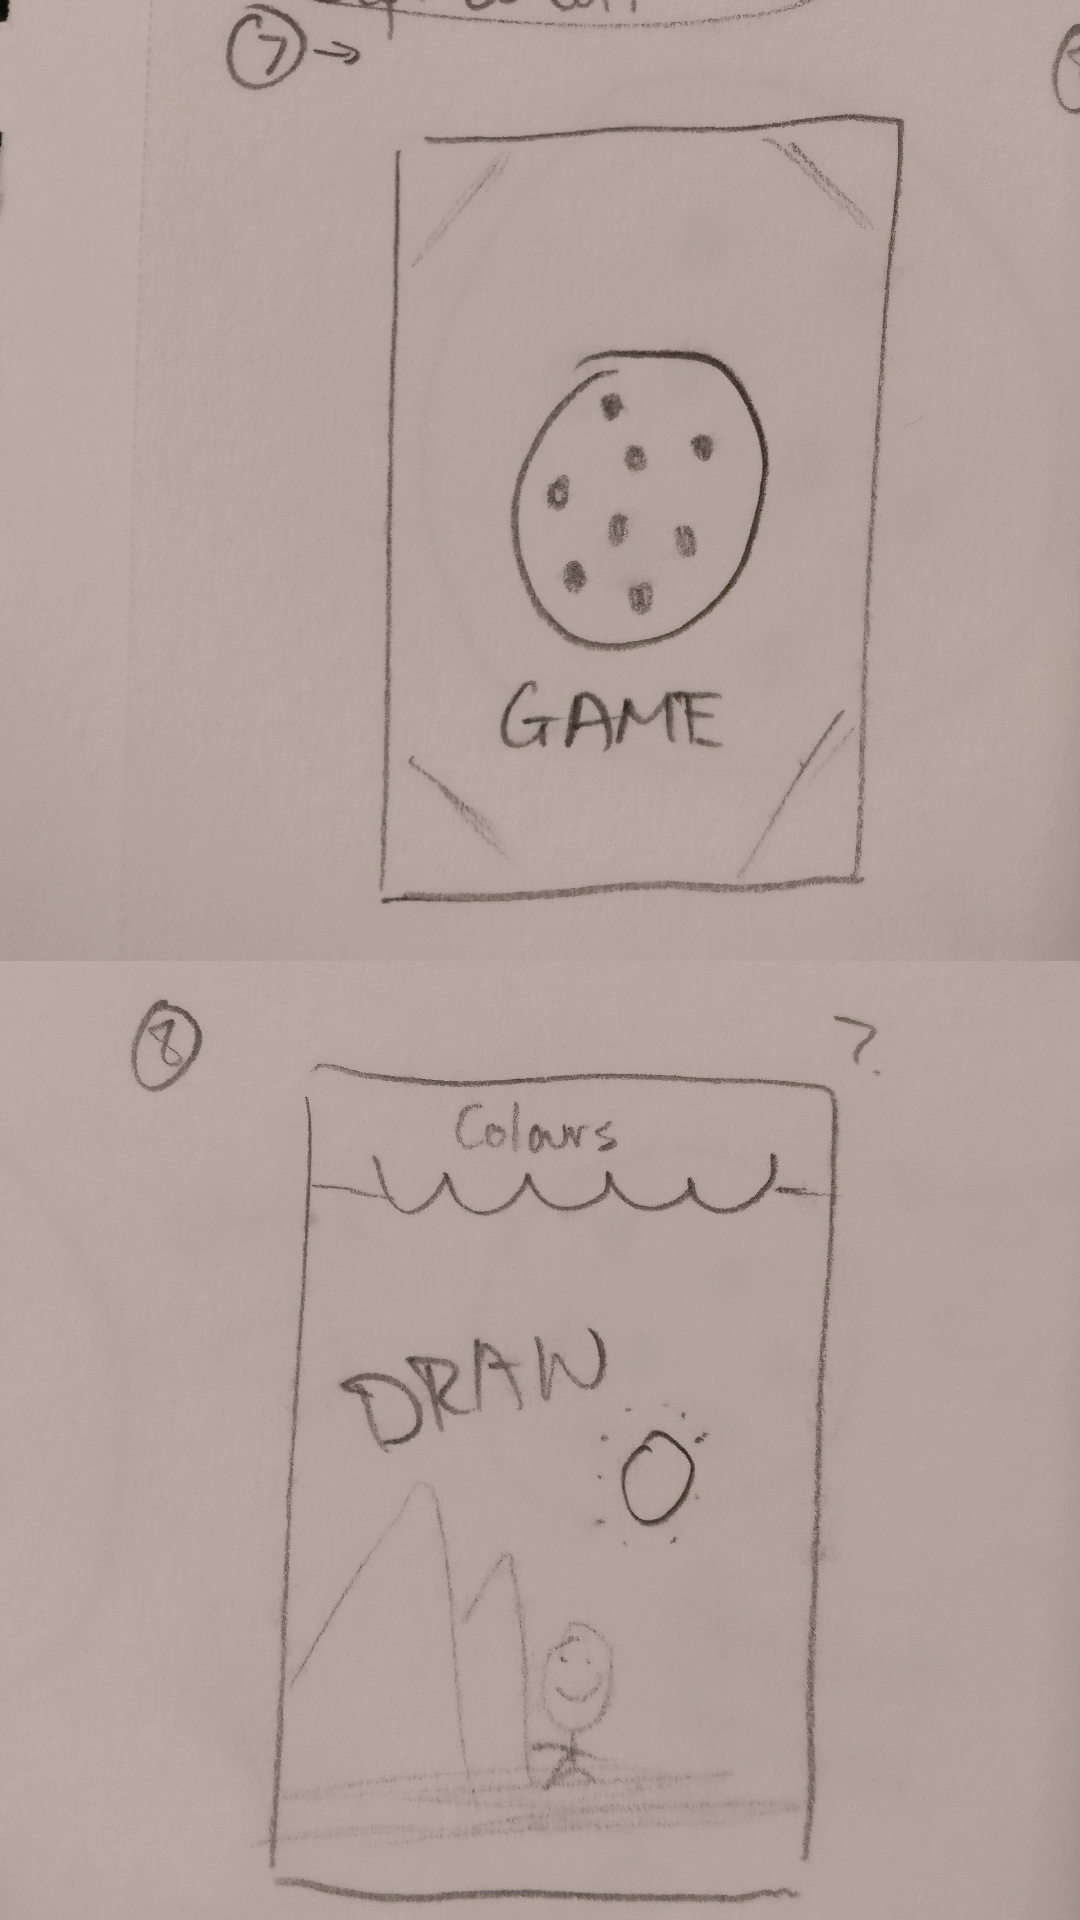 7 →
GAME
8
?
Colours
DRAW